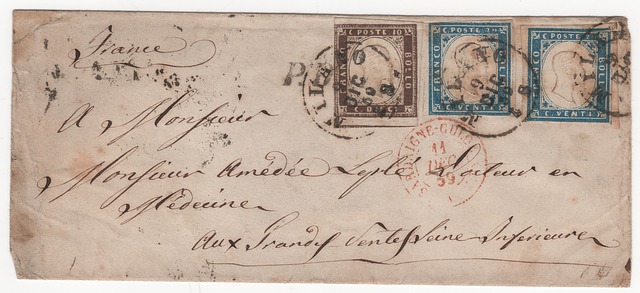 France
C POSTE 10
FRANCO
BOLLO
C POSTE 20
FRANCO
BOLLO
C. VENTI
C POSTE 20
FRANCO
BOLLO
C. VENTI
MILANO
9
DIC
59
11
DEC
59
A Monsieur
Monsieur Amédée Leplé Docteur en
Médecine
Aux Grandes Ventes Seine Inférieure